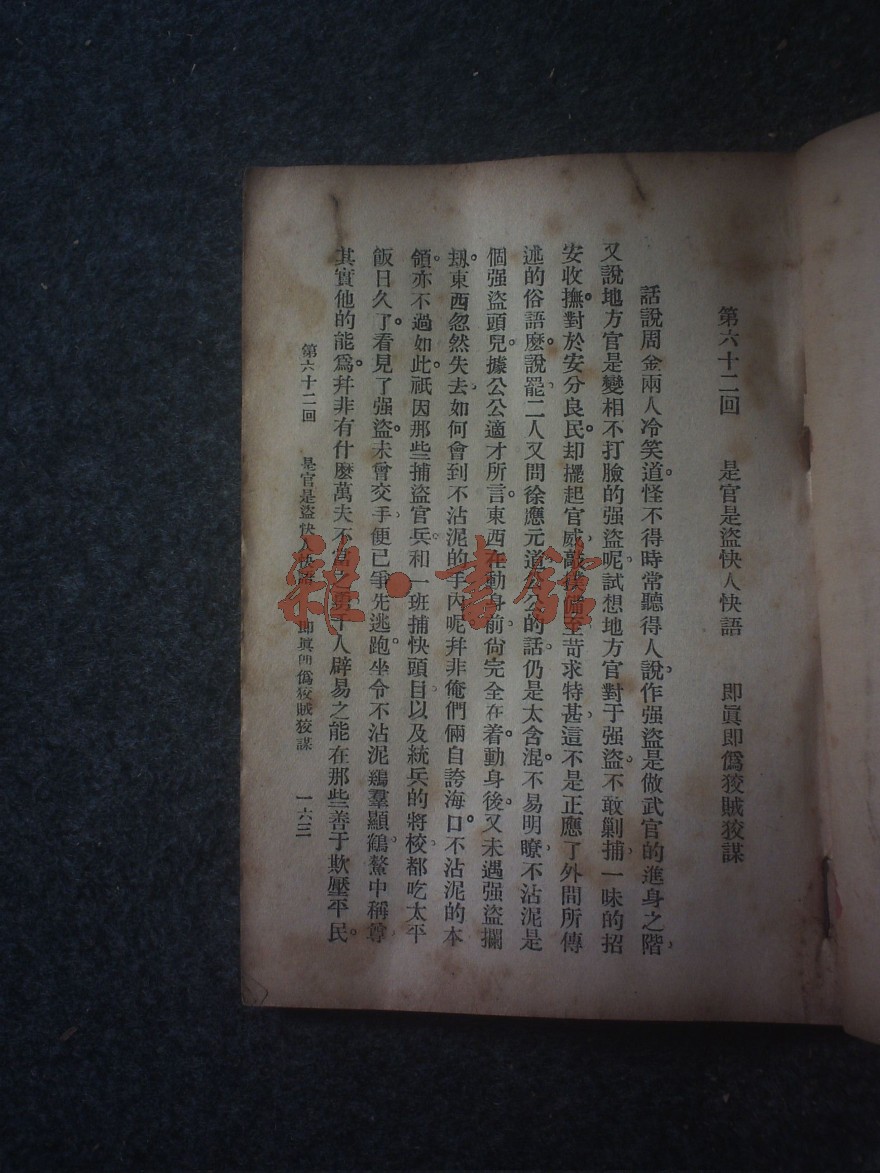 第六十二回 是官是盜快人快語 卽眞卽僞狡賊狡謀
話說周金兩人冷笑道。怪不得時常聽得人說、作强盜是做武官的進身之階、
又說地方官是變相不打臉的强盜呢。試想地方官對于强盜、不敢剿捕、一味的招
安收撫。對於安分良民、却擺起官威、敲撲備至、苛求特甚、這不是正應了外間所傳
述的俗語麽。說罷、二人又問徐應元道、公公的話、仍是太含混。不易明瞭、不沾泥是
個强盜頭兒。據公公適才所言。東西在動身前、尙完全在着。動身後。又未遇强盜攔
刼。東西忽然失去、如何會到不沾泥的手內呢、幷非俺們倆自誇海口。不沾泥的本
領。亦不過如此。祇因那些捕盜官兵、和一班捕快頭目、以及統兵的將校、都吃太平
飯日久了。看見了强盜。未曾交手、便已爭先逃跑。坐令不沾泥鷄羣顯鶴、鰲中稱尊
其實他的能爲。幷非有什麽萬夫不當之勇、千人辟易之能、在那些善于欺壓平民。
第六十二回 是官是盜快人快語 卽眞卽僞狡賊狡謀 一六三
雜·書館